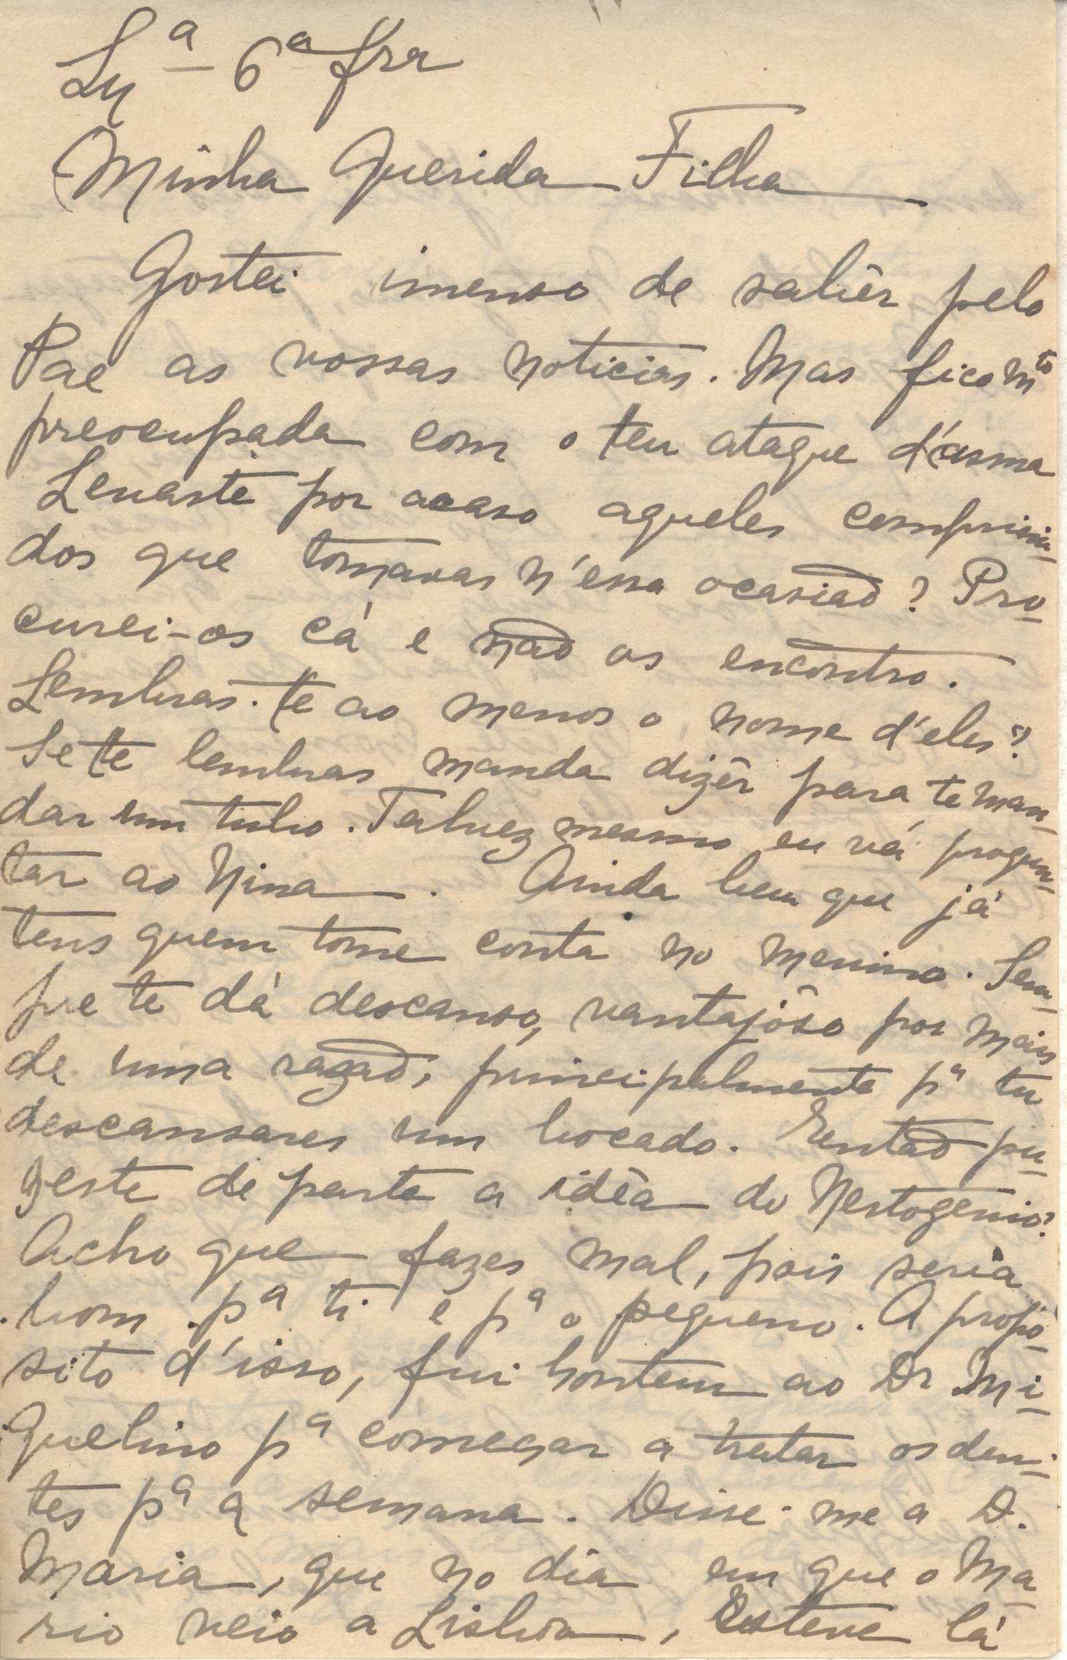 Lxª 6ª fra
Minha Querida Filha
Gostei imenso de sabêr pelo
Pae as vossas noticias. Mas fico mto
preocupada com o teu ataque d'asma
Levaste por acaso aqueles comprimi-
dos que tomavas n'essa ocasião? Pro-
curei-os cá e não os encontro.
Lembras-te ao menos o nome d'eles?
Se te lembras manda dizêr para te man-
dar um tubo. Talvez mesmo eu vá pregun-
tar ao Nina. Ainda bem que já
tens quem tome conta no menino. Sem-
pre te dá descanso, vantajôso por mais
de uma razão, principalmente pª tu
descansares um bocado. Então pu-
zeste de parte a idêa do Nestogenio?
Acho que fazes mal, pois seria
bom pª ti e pª o pequeno. A propó-
sito d'isso, fui hontem ao Dr Mi-
guelino pª começar a tratar os den-
tes pª a semana. Disse-me a D.
Maria, que no dia em que o Ma-
rio veio a Lisboa, esteve lá